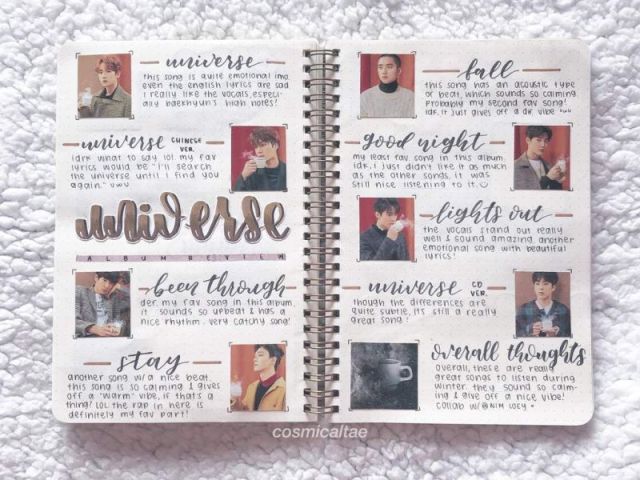 universe
this song is quite emotional imo
even the english lyrics are sad
I really like the vocals, especi-
ally baekhyun's high notes!
universe CHINESE VER.
idrk what to say lol my fav
lyrics would be "I'll search
the universe until I find you
again." uwu
universe
ALBUM REVIEW
been through
def. my fav song in this album.
it sounds so upbeat & has a
nice rhythm. very catchy song!
stay
another song w/a nice beat.
this song is so calming & gives
off a "warm" vibe, if that's a
thing! LOL the rap in here is
definitely my fav part!
fall
this song has an acoustic type
of beat, which sounds so calming
probably my second fav song!
idk, it just gives off a vibe
good night
my least fav song in this album.
idk, I just didn't like it as much
as the other songs. it was
still nice listening to it.
lights out
the vocals stand out really
well & sound amazing. another
emotional song with beautiful
lyrics!
universe CD VER.
though the differences are
quite subtle, it's still a really
great song!
overall thoughts
overall, there are really
great songs to listen during
winter. they sound so calm-
ing & give off a nice vibe!
collab w/
cosmicaltae